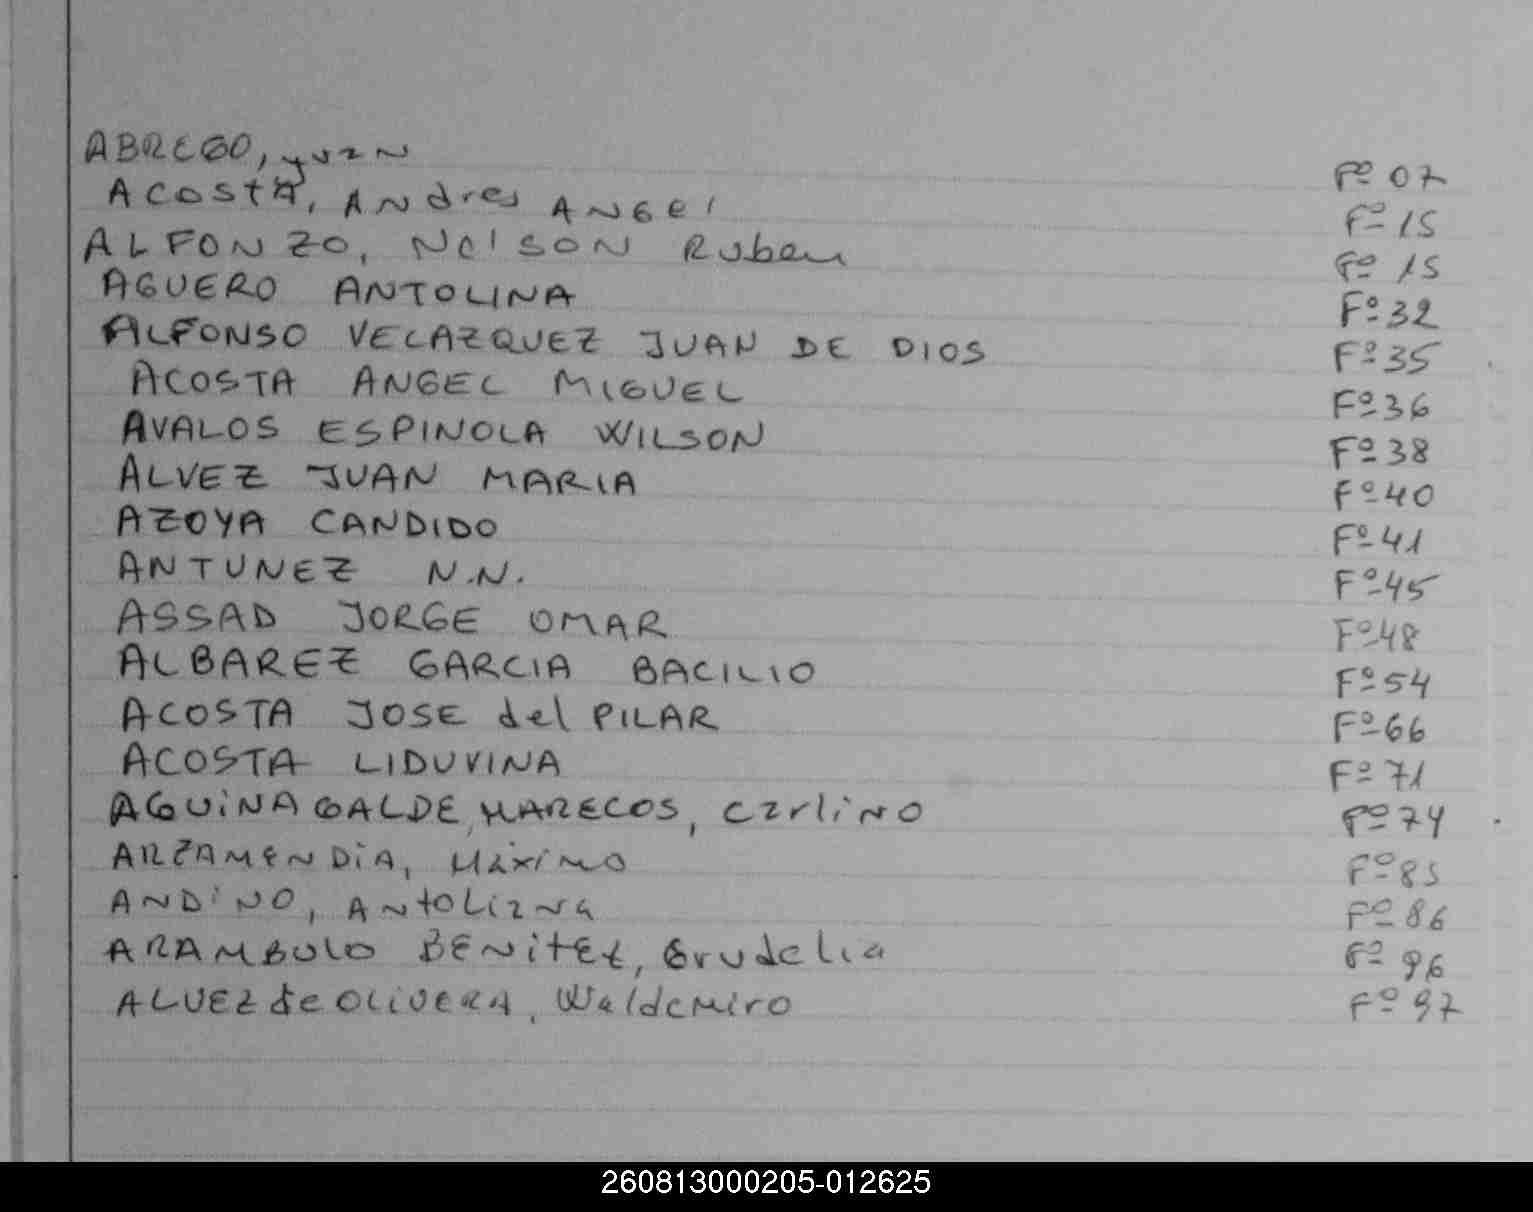 ABREGO, Juan Fº 07
Acosta, Andres Angel Fº 15
ALFONZO, Nelson Ruben Fº 15
AGUERO ANTOLINA Fº 32
ALFONSO VELAZQUEZ JUAN DE DIOS Fº 35
ACOSTA ANGEL MIGUEL Fº 36
AVALOS ESPINOLA WILSON Fº 38
ALVEZ JUAN MARIA Fº 40
AZOYA CANDIDO Fº 41
ANTUNEZ N.N. Fº 45
ASSAD JORGE OMAR Fº 48
ALBAREZ GARCIA BACILIO Fº 54
ACOSTA JOSE del PILAR Fº 66
ACOSTA LIDUVINA Fº 71
AGUINAGALDE MARECOS, Carlino Fº 74
ARZAMENDIA, Máximo Fº 85
ANDINO, Antoliana Fº 86
ARAMBULO BENITEZ, Grudelia Fº 96
ALVEZ de OLIVERA, Waldemiro Fº 97
260813000205-012625